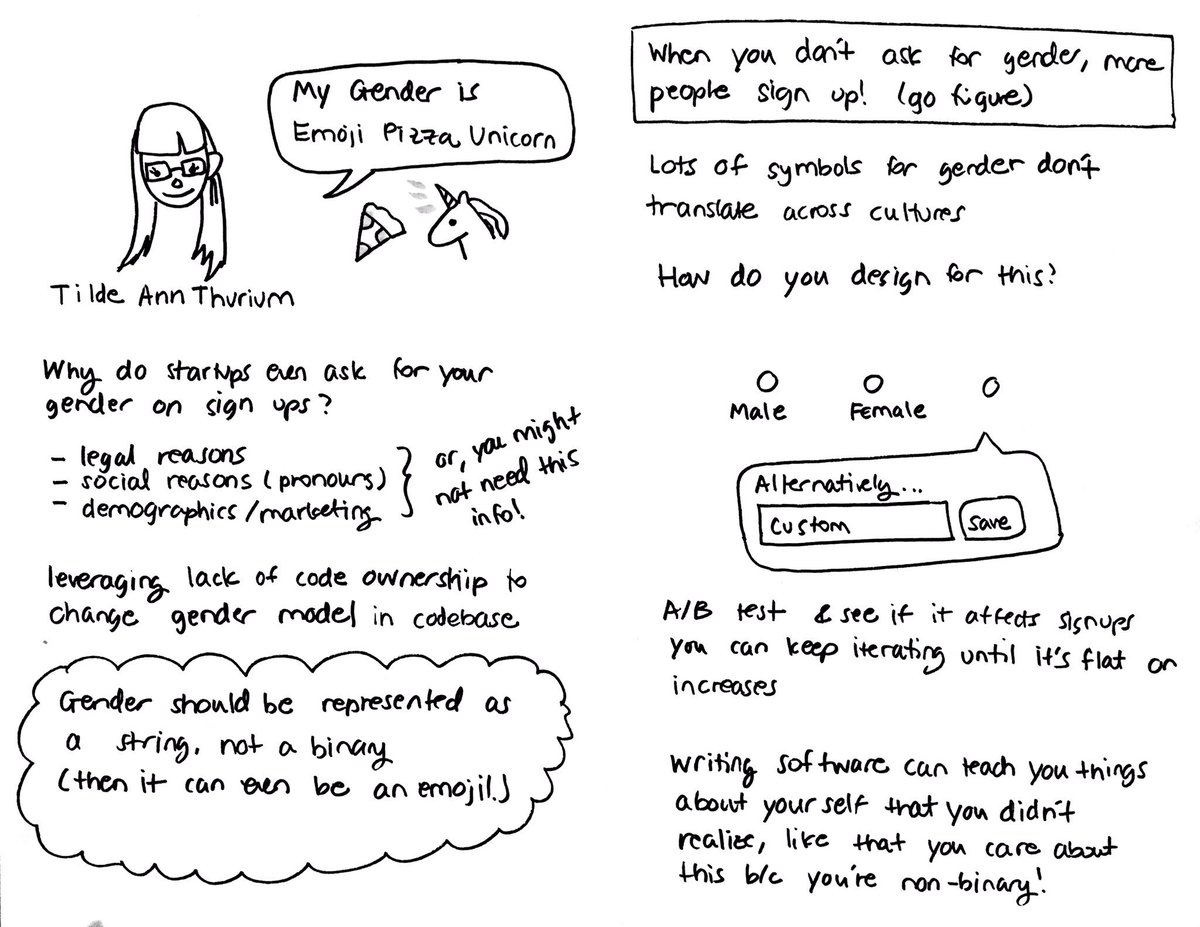 My Gender is
Emoji Pizza Unicorn
Tilde Ann Thurium
Why do startups even ask for your
gender on sign ups?
- legal reasons
- social reasons (pronouns)
- demographics/marketing
or, you might
not need this
info!
leveraging lack of code ownership to
change gender model in codebase
Gender should be represented as
a string, not a binary
(then it can even be an emoji!)
When you don't ask for gender, more
people sign up! (go figure)
Lots of symbols for gender don't
translate across cultures
How do you design for this?
Male
Female
Alternatively...
Custom
save
A/B test & see if it affects signups
you can keep iterating until it's flat or
increases
writing software can teach you things
about yourself that you didn't
realize, like that you care about
this b/c you're non-binary!